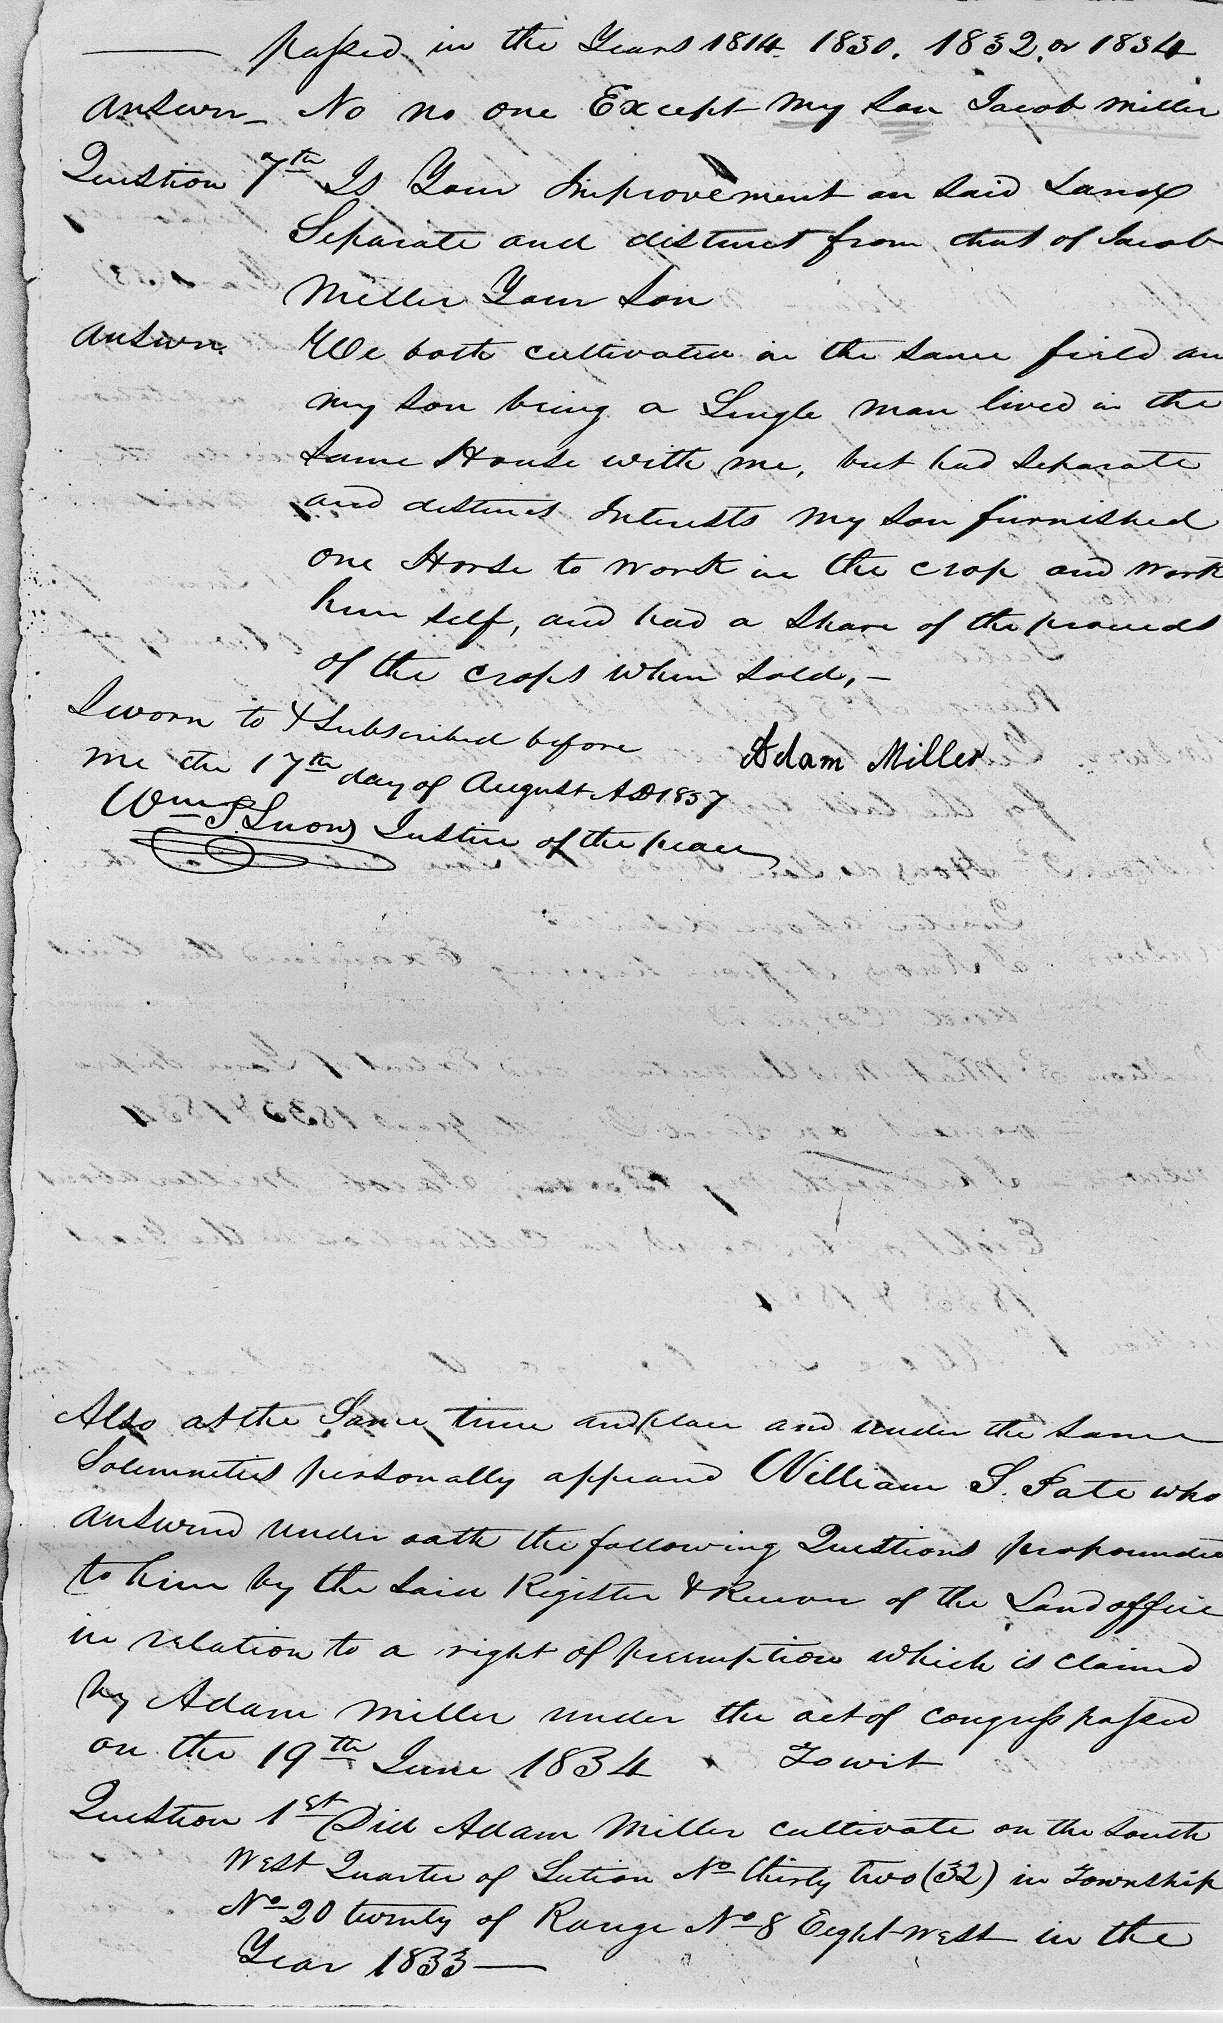 —— passed in the Years 1814. 1830. 1832. or 1834
Answer - No no one Except My Son Jacob Miller
Question 7th Is Your Improvement on Said Land
Separate and distinct from that of Jacob
Miller Your Son
Answer. We both cultivated in the same field and
my son being a Single man lived in the
same House with me, but had separate
and distinct Interests My Son furnished
one Horse to work in the crop and work
him self, and had a share of the proceeds
of the crops when sold, -
Sworn to & Subscribed before
me the 17th day of August AD 1837
Adam Miller
Wm S. Snow Justice of the peace
Also at the Same time and place and under the same
Solemnities personally appeared William S. Pate who
answered under oath the following Questions propounded
to him by the said Register & Receiver of the Land office
in relation to a right of preemption which is claimed
by Adam Miller under the act of congress passed
on the 19th June 1834 Towit
Question 1st Did Adam Miller cultivate on the South
West Quarter of Section No thirty two (32) in Township
No 20 twenty of Range No 8 Eight West in the
Year 1833 —